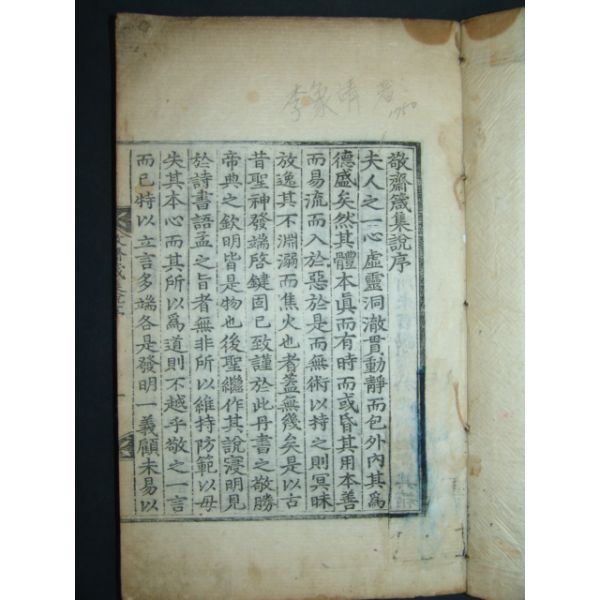 李象靖 著
1780
敬齋箴集說序
夫人之一心虛靈洞澈貫動靜而包外內其爲
德盛矣然其體本眞而有時而或昏其用本善
而易流而入於惡於是而無術以持之則冥昧
放逸其不淵溺而焦火也者蓋無幾矣是以古
昔聖神發端啓鍵固已致謹於此丹書之敬勝
帝典之欽明皆是物也後聖繼作其說寖明見
於詩書語孟之旨者無非所以維持防範以毋
失其本心而其所以爲道則不越乎敬之一言
而已特以立言多端各是發明一義顧未易以